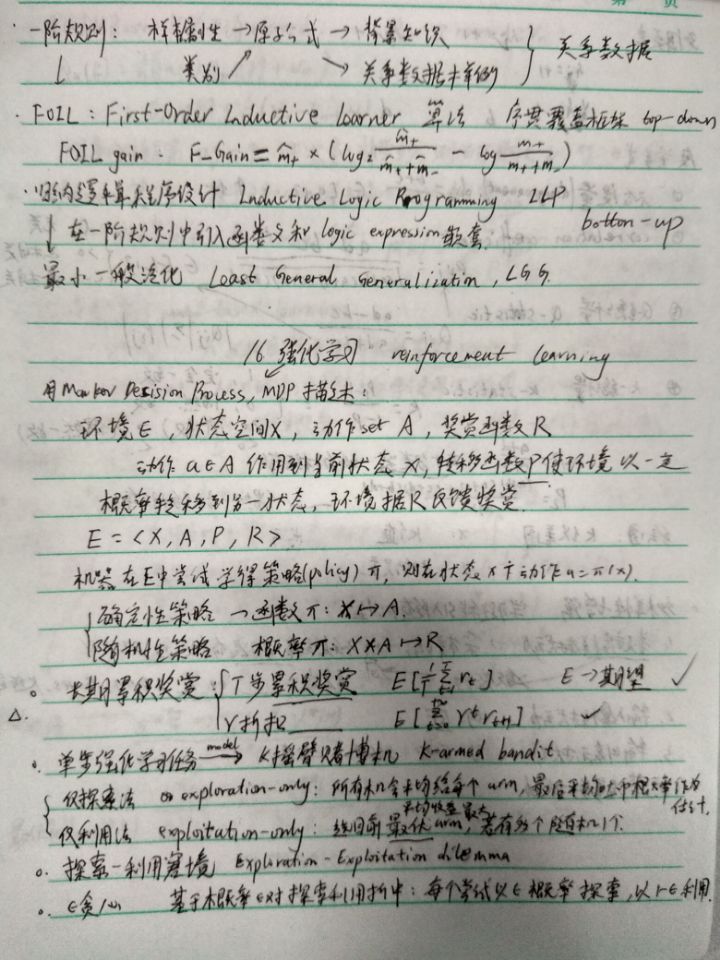 · 一阶规则: 样本属性 → 原子公式 → 背景知识 } 关系数据
类别 ↗ ↘ 关系数据样例
· FOIL: First-Order Inductive Learner 算法 序贯覆盖框架 top-down
FOIL gain. F_Gain = m̂₊ × (log₂ m̂₊/(m̂₊+m̂₋) − log m₊/(m₊+m₋))
· 归纳逻辑程序设计 Inductive Logic Programming ILP
↓ 在一阶规则中引入函数和 logic expression 嵌套. botton-up
最小一般泛化 Least General Generalization, LGG.
16 强化学习 reinforcement learning
用 Markov Decision Process, MDP 描述:
环境 E, 状态空间 X, 动作set A, 奖赏函数 R
动作 a∈A 作用到当前状态 x, 转移函数P使环境以一定
概率转移到另一状态, 环境据R反馈奖赏.
E = <X, A, P, R>
机器在E中尝试学得策略(policy) π, 则在状态x下动作a=π(x).
{ 确定性策略 → 函数 π: X ↦ A.
随机性策略 概率 π: X×A ↦ R
。 长期累积奖赏: { T步累积奖赏 E[1/T Σ rₜ] E → 期望 ✓
△. γ折扣 E[Σ γᵗ rₜ₊₁] ✓
。 单步强化学习任务 model→ K摇臂赌博机 K-armed bandit
{ 仅探索法 exploration-only: 所有机会平均给每个 arm, 最后平均吐币概率作为估计.
仅利用法 exploitation-only: 按目前最优(平均收益最大) arm, 若有多个随机1个.
。 探索-利用窘境 Exploration-Exploitation dilemma
。 ϵ贪心 基于概率ϵ对探索利用折中: 每个尝试以ϵ概率探索, 以1-ϵ利用.